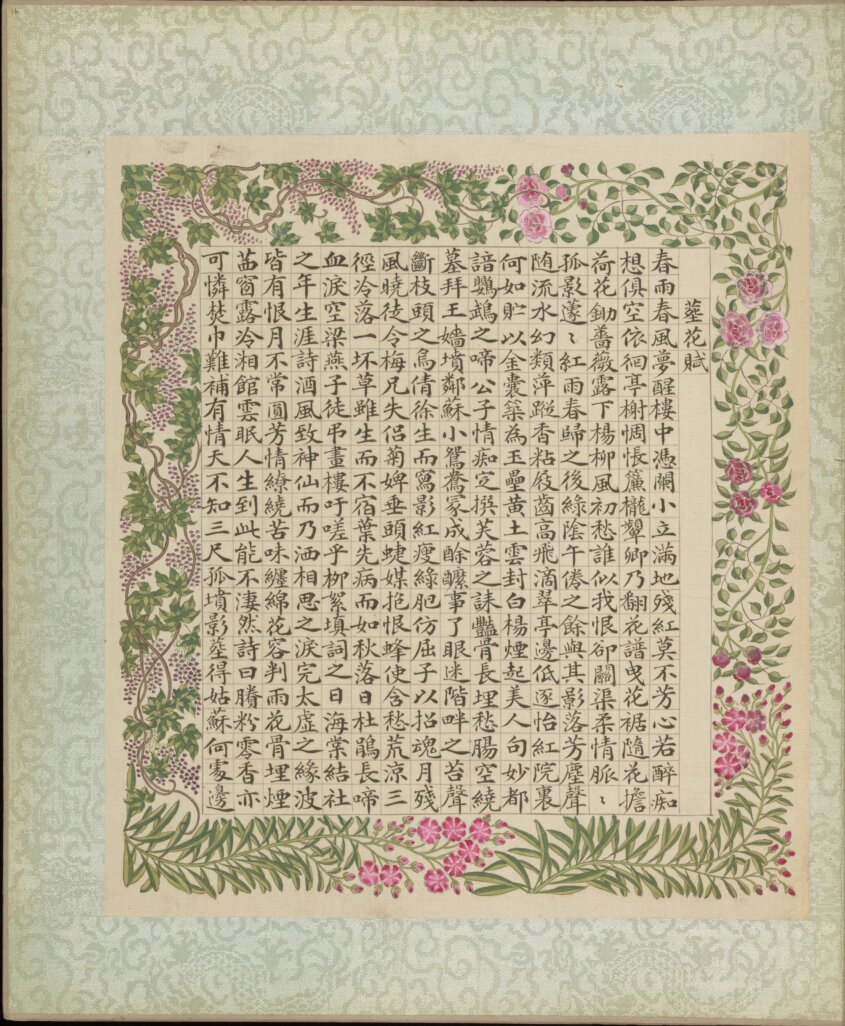 葬花賦
春雨春風夢醒樓中憑闌小立滿地殘紅莫不芳心若醉痴
想俱空依徊亭榭惆悵簾櫳顰卿乃翻花譜曳花裾隨花擔
荷花鋤薔薇露下楊柳風初愁誰似我恨卻關渠柔情脈〻
孤影蘧〻紅雨春歸之後綠陰午倦之餘與其影落芳塵聲
随流水幻類萍蹤香粘屐齒高飛滴翠亭邊低逐怡紅院裏
何如貯以金囊築為玉壘黃土雲封白楊煙起美人句妙都
諳鸚鵡之啼公子情痴定撰芙蓉之誄豔骨長埋愁腸空繞
墓拜王嬙墳鄰蘇小鴛鴦冢成酴醾事了眼迷階畔之苔聲
斷枝頭之鳥倩徐生而寫影紅瘦綠肥仿屈子以招魂月殘
風曉徒令梅兄失侶菊婢垂頭蜨媒抱恨蜂使含愁荒涼三
徑冷落一坏草雖生而不宿葉先病而如秋落日杜鵑長啼
血淚空梁燕子徒弔畫樓吁嗟乎柳絮填詞之日海棠結社
之年生涯詩酒風致神仙而乃洒相思之淚完太虛之緣波
皆有恨月不常圓芳情繚繞苦味纏綿花容判雨花骨埋煙
茜窗露冷湘館雲眠人生到此能不淒然詩曰賸粉零香亦
可憐焚巾難補有情天不知三尺孤墳影葬得姑蘇何處邊